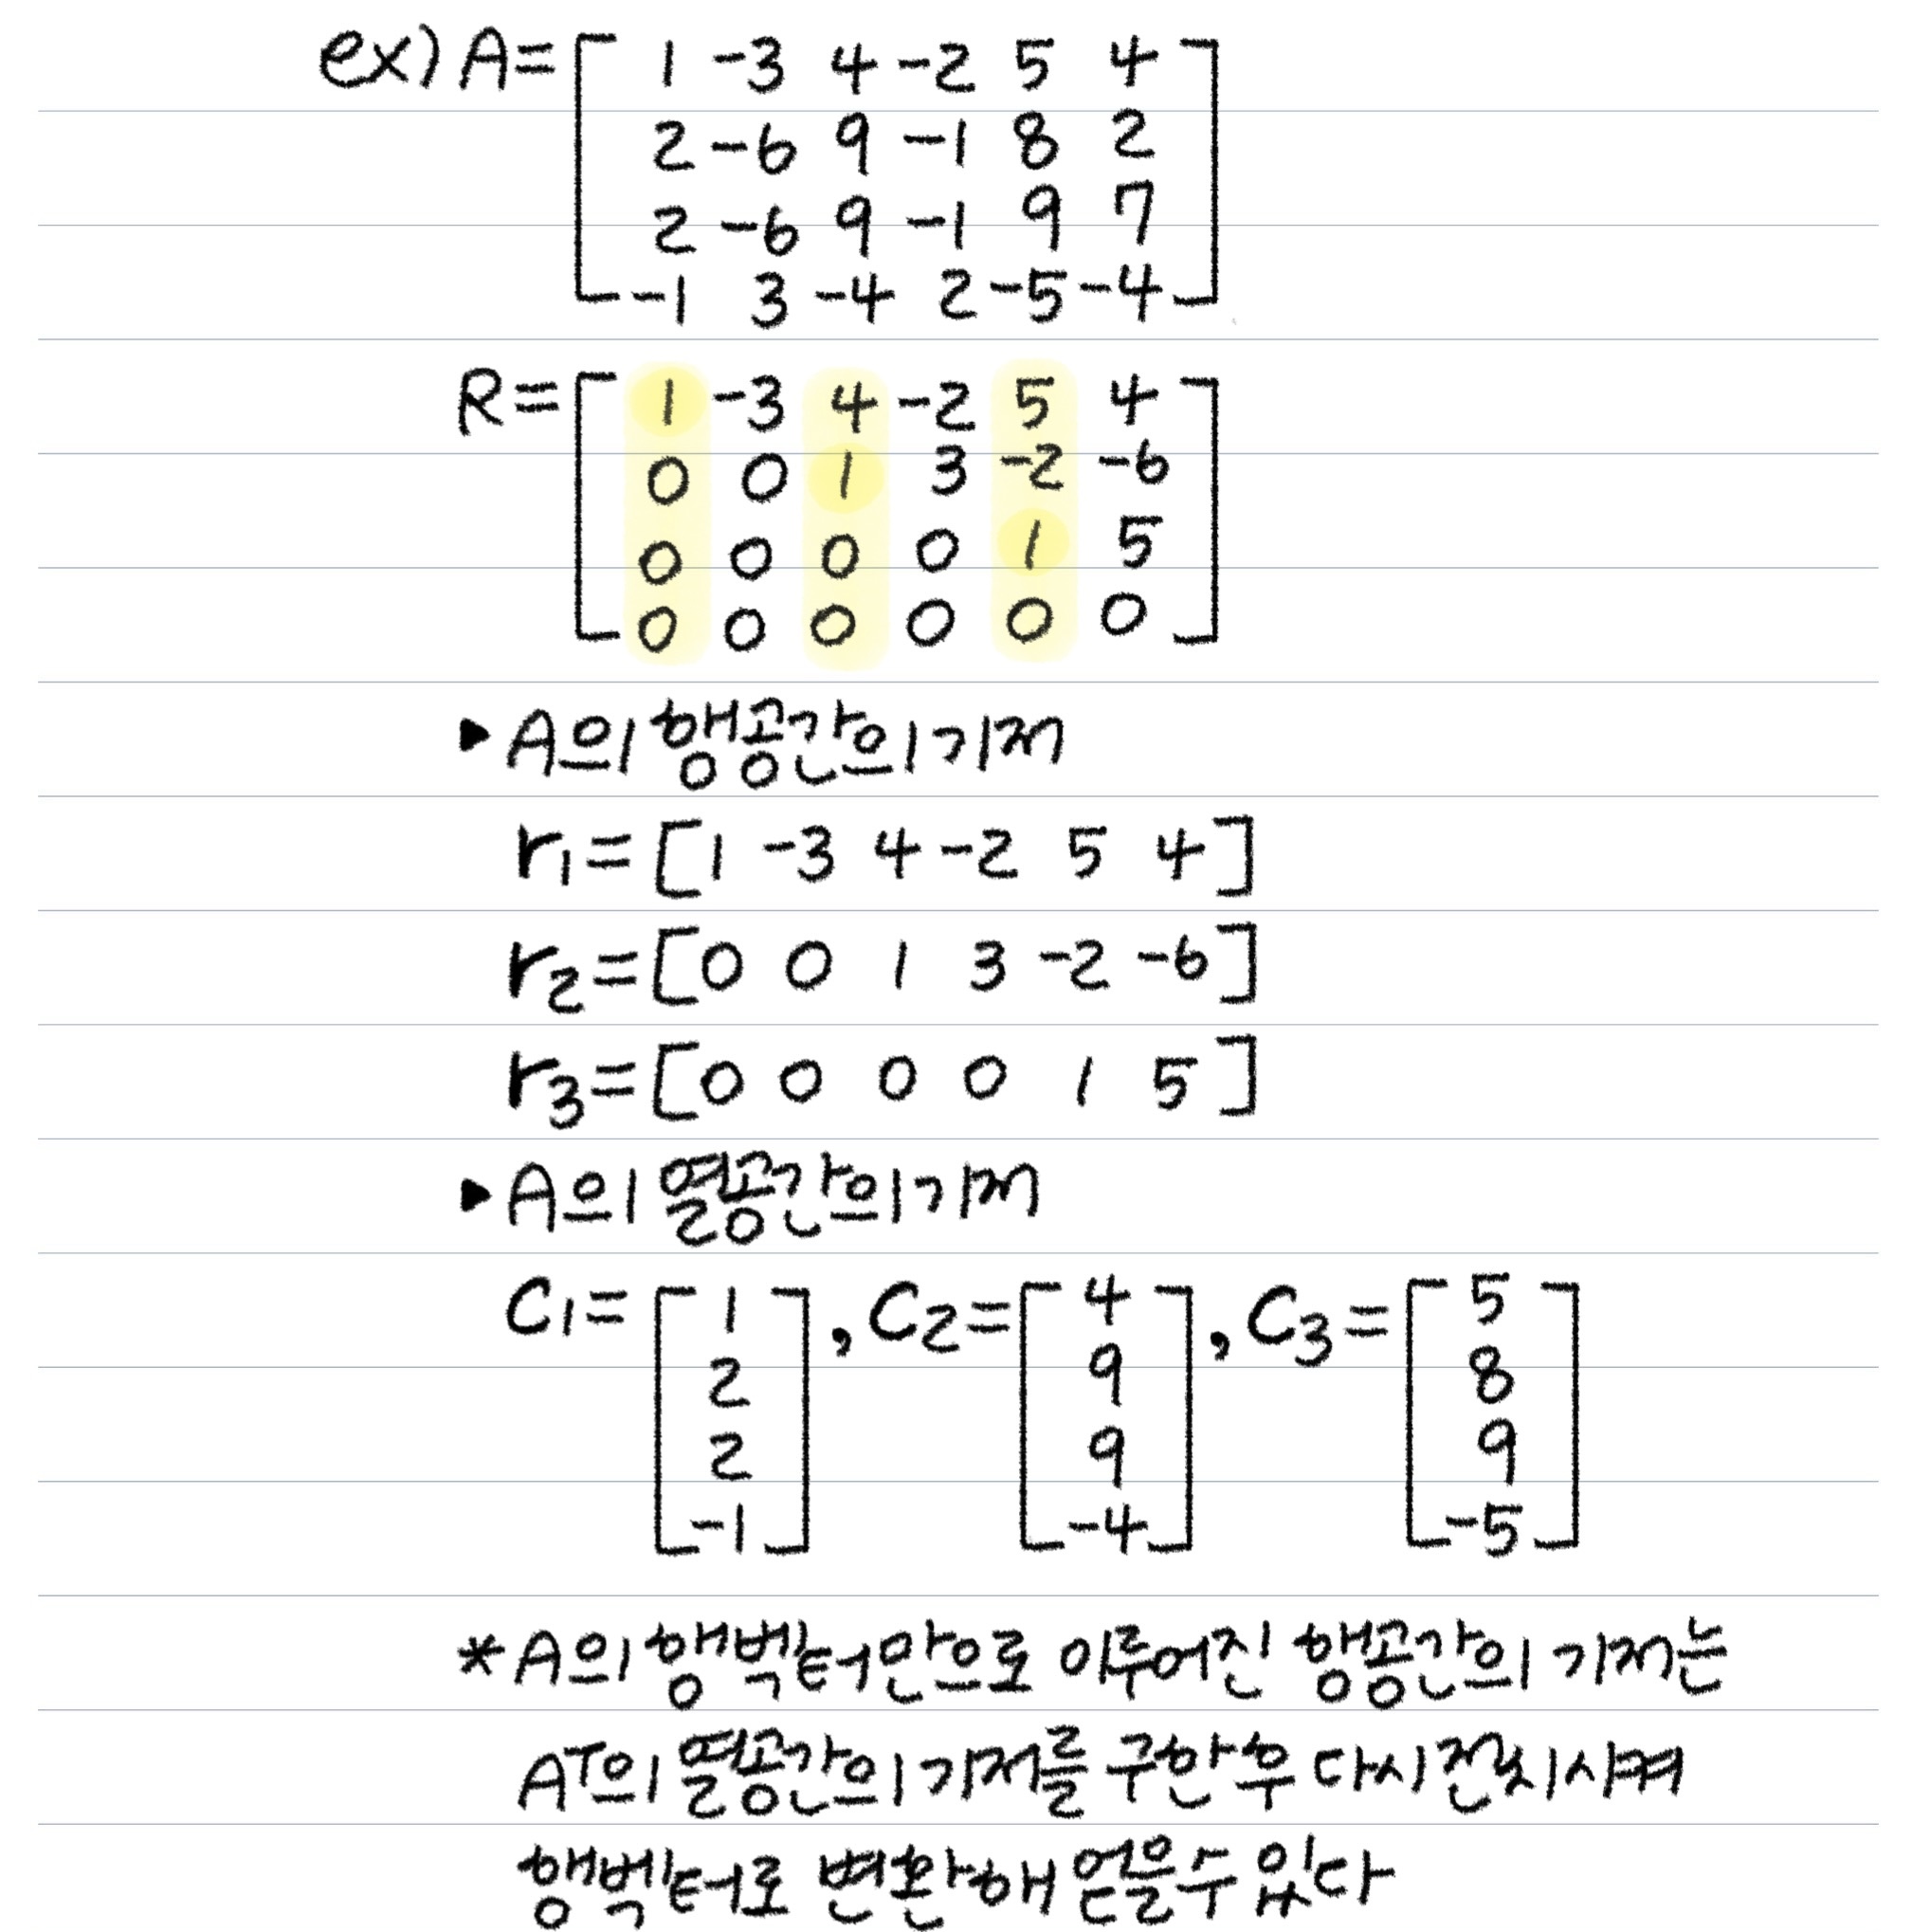 ex) A= [ 1 -3 4 -2 5 4 ]
2 -6 9 -1 8 2
2 -6 9 -1 9 7
-1 3 -4 2 -5 -4
R= [ 1 -3 4 -2 5 4 ]
0 0 1 3 -2 -6
0 0 0 0 1 5
0 0 0 0 0 0
▶A의 행공간의 기저
r1=[1 -3 4 -2 5 4]
r2=[0 0 1 3 -2 -6]
r3=[0 0 0 0 1 5]
▶A의 열공간의 기저
C1= [ 1 ] , C2= [ 4 ] , C3= [ 5 ]
2 9 8
2 9 9
-1 -4 -5
*A의 행벡터만으로 이루어진 행공간의 기저는
Aᵀ의 열공간의 기저를 구한후 다시 전치시켜
행벡터로 변환해 얻을수 있다